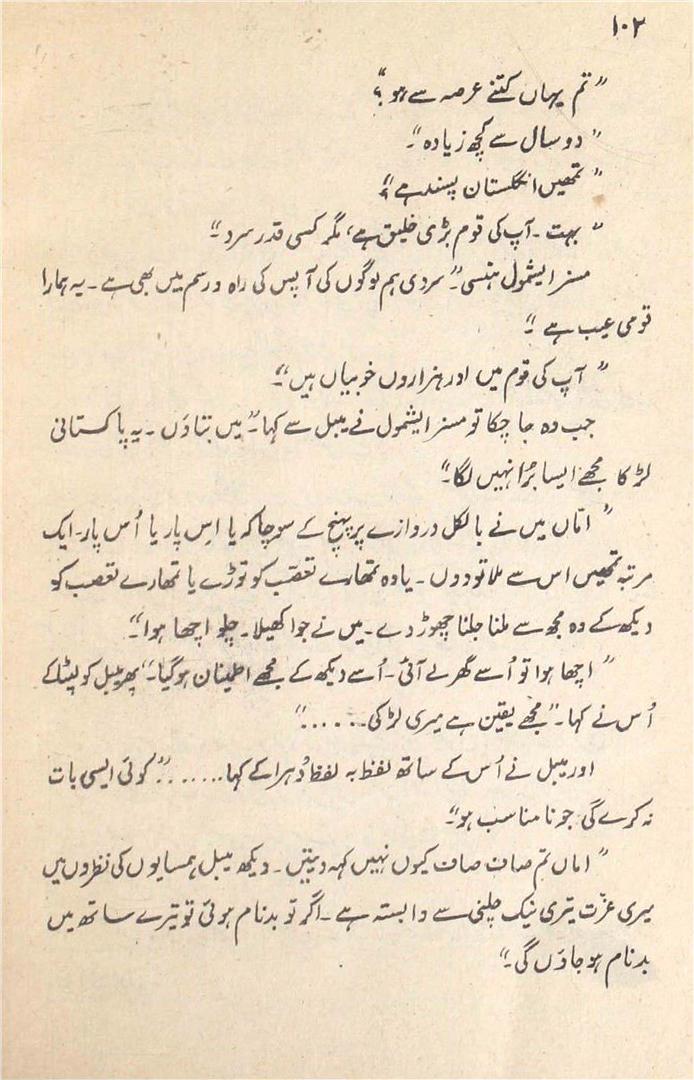 ۱۰۲
”تم یہاں کتنے عرصہ سے ہو؟“
”دو سال سے کچھ زیادہ“۔
”تمھیں انگلستان پسند ہے؟“
”بہت۔ آپ کی قوم بڑی خلیق ہے، مگر کسی قدر سرد“۔
مسز ایشمول ہنسی۔ ”سردی ہم لوگوں کی آپس کی راہ و رسم میں بھی ہے۔ یہ ہمارا
قومی عیب ہے“۔
”آپ کی قوم میں اور ہزاروں خوبیاں ہیں“۔
جب وہ جا چکا تو مسز ایشمول نے میبل سے کہا۔ ”میں بتاؤں۔ یہ پاکستانی
لڑکا مجھے ایسا بُرا نہیں لگا۔“
”امّاں میں نے بالکل دروازے پر پہنچ کے سوچا کہ یا اِس پار یا اُس پار۔ ایک
مرتبہ تمھیں اس سے ملا تو دوں۔ یا وہ تمھارے تعصّب کو توڑے یا تمھارے تعصب کو
دیکھ کے وہ مجھ سے ملنا جلنا چھوڑ دے۔ میں نے جوا کھیلا۔ چلو اچھا ہوا“۔
”اچھا ہوا تو اُسے گھر لے آئی۔ اُسے دیکھ کے مجھے اطمینان ہو گیا۔“ پھر میبل کو لپٹا کے
اُس نے کہا۔ ”مجھے یقین ہے میری لڑکی......“
اور میبل نے اُس کے ساتھ لفظ بہ لفظ دُہرا کے کہا......”کوئی ایسی بات
نہ کرے گی جو نا مناسب ہو“۔
”اماں تم صاف صاف کیوں نہیں کہہ دیتیں۔ دیکھ میبل ہمسایوں کی نظروں میں
میری عزّت تیری نیک چلنی سے وابستہ ہے۔ اگر تو بدنام ہوئی تو تیرے ساتھ میں
بدنام ہو جاؤں گی۔“